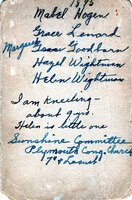 1895
Mabel Hogen
Grace Lenard
Margaret
Isaac Goodbarn
Hazel Wightman
Helen Wightman
I am kneeding-
about guis.
Helen is little one
Sunshine Committee
Plymouth Cong. Church
7th & Locust